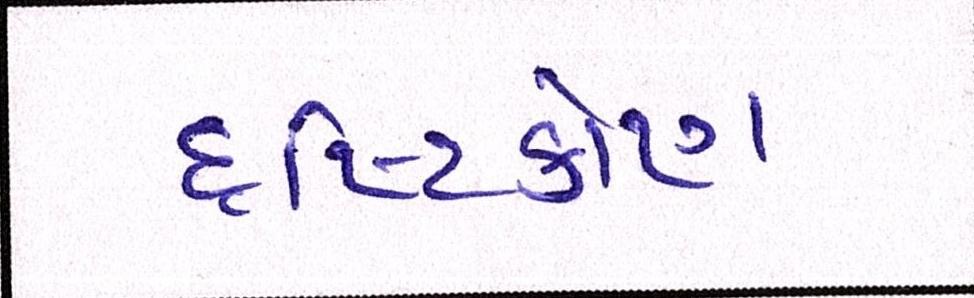 દૃષ્ટિકોણ